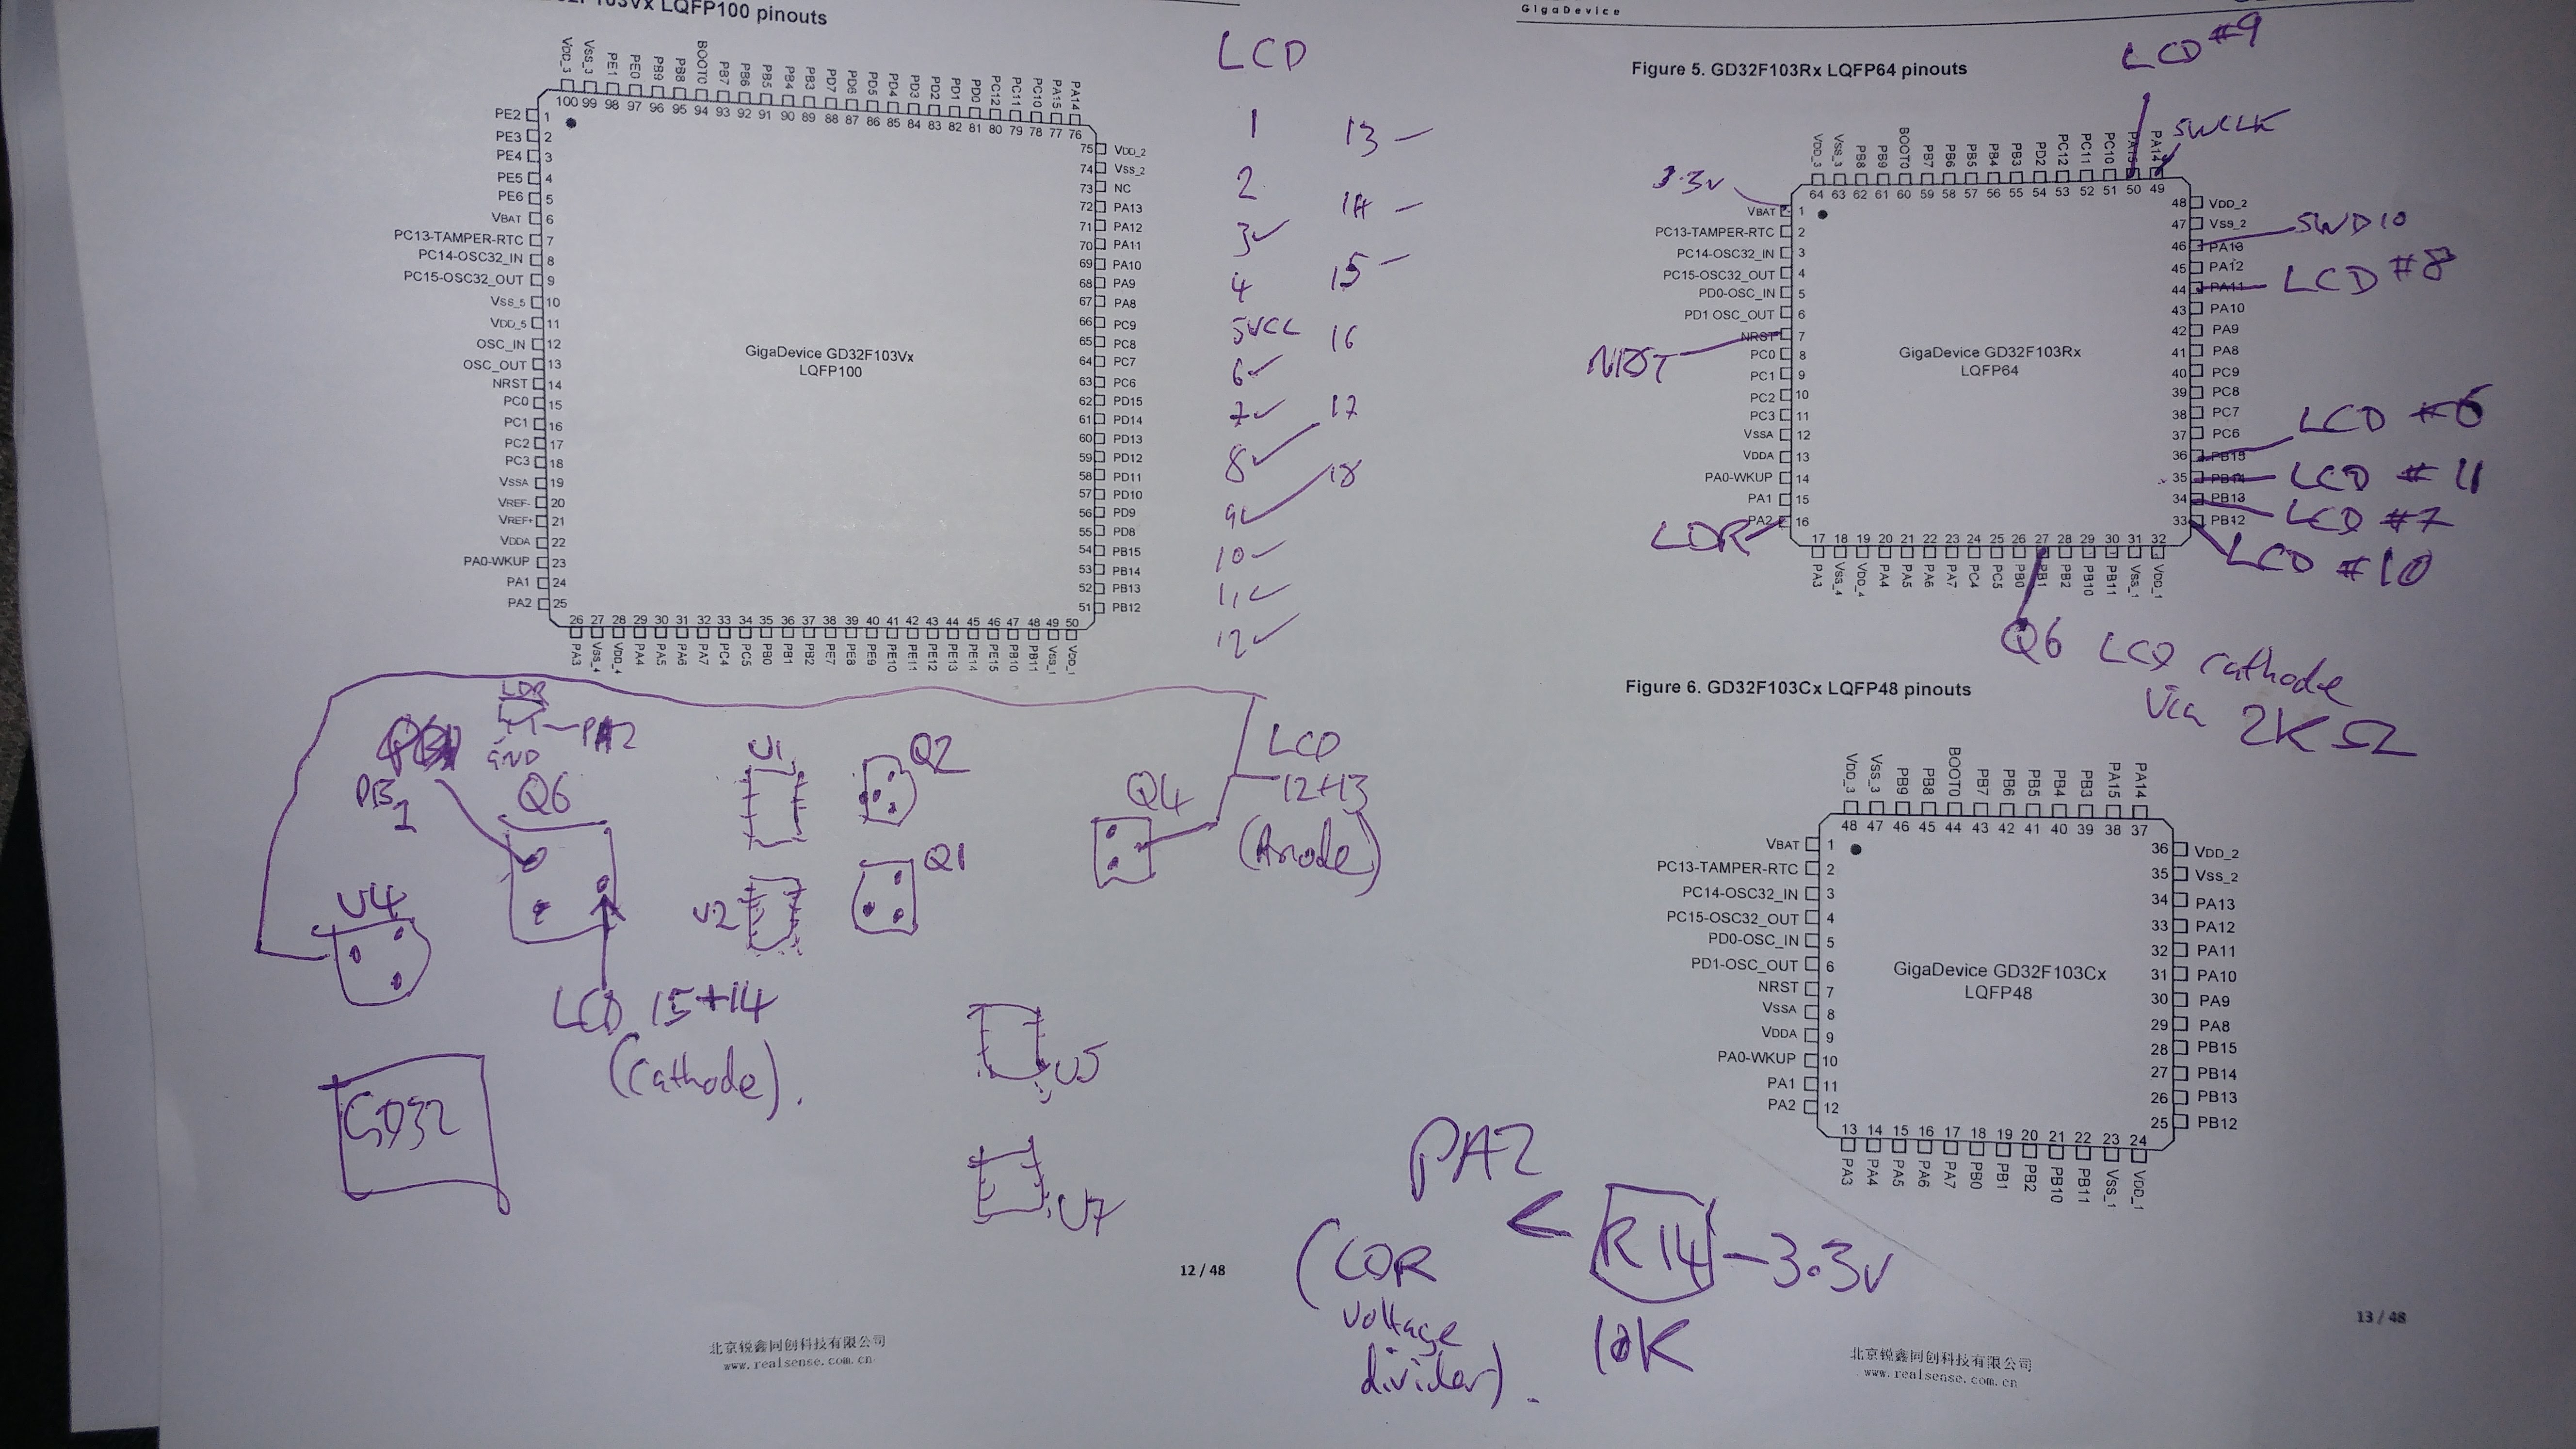 LQFP100 pinouts
VDD_3 VSS_3 PE1 PE0 PB9 PB8 BOOT0 PB7 PB6 PB5 PB4 PB3 PD7 PD6 PD5 PD4 PD3 PD2 PD1 PD0 PC12 PC11 PC10 PA15 PA14
100 99 98 97 96 95 94 93 92 91 90 89 88 87 86 85 84 83 82 81 80 79 78 77 76
PE2 1
PE3 2
PE4 3
PE5 4
PE6 5
VBAT 6
PC13-TAMPER-RTC 7
PC14-OSC32_IN 8
PC15-OSC32_OUT 9
VSS_5 10
VDD_5 11
OSC_IN 12
OSC_OUT 13
NRST 14
PC0 15
PC1 16
PC2 17
PC3 18
VSSA 19
VREF- 20
VREF+ 21
VDDA 22
PA0-WKUP 23
PA1 24
PA2 25
GigaDevice GD32F103Vx
LQFP100
75 VDD_2
74 VSS_2
73 NC
72 PA13
71 PA12
70 PA11
69 PA10
68 PA9
67 PA8
66 PC9
65 PC8
64 PC7
63 PC6
62 PD15
61 PD14
60 PD13
59 PD12
58 PD11
57 PD10
56 PD9
55 PD8
54 PB15
53 PB14
52 PB13
51 PB12
26 27 28 29 30 31 32 33 34 35 36 37 38 39 40 41 42 43 44 45 46 47 48 49 50
PA3 VSS_4 VDD_4 PA4 PA5 PA6 PA7 PC4 PC5 PB0 PB1 PB2 PE7 PE8 PE9 PE10 PE11 PE12 PE13 PE14 PE15 PB10 PB11 VSS_1 VDD_1
LCD
1 13 –
2 14 –
3 ✓ 15 –
4
5 VCC 16
6 ✓
7 ✓ 17
8 ✓
9 ✓ 18
10 ✓
11 ✓
12 ✓
LDR
PA2
GND
PB1
Q6
U1
Q2
Q4
LCD
12+13
(Anode)
U4
U2
Q1
LCD 15+14
(Cathode).
GD32
U5
U7
12 / 48
北京锐鑫同创科技有限公司
www.realsense.com.cn
GigaDevice
Figure 5. GD32F103Rx LQFP64 pinouts
LCD #9
SWCLK
3.3v
VDD_3 VSS_3 PB8 PB9 BOOT0 PB7 PB6 PB5 PB4 PB3 PD2 PC12 PC11 PC10 PA15 PA14
64 63 62 61 60 59 58 57 56 55 54 53 52 51 50 49
VBAT 1
PC13-TAMPER-RTC 2
PC14-OSC32_IN 3
PC15-OSC32_OUT 4
PD0-OSC_IN 5
PD1 OSC_OUT 6
NRST 7
PC0 8
PC1 9
PC2 10
PC3 11
VSSA 12
VDDA 13
PA0-WKUP 14
PA1 15
PA2 16
LDR
GigaDevice GD32F103Rx
LQFP64
48 VDD_2
47 VSS_2
46 PA13 SWDIO
45 PA12
44 PA11 LCD #8
43 PA10
42 PA9
41 PA8
40 PC9
39 PC8
38 PC7
37 PC6
36 PB15 LCD #6
35 PB14 LCD #11
34 PB13 LCD #7
33 PB12 LCD #10
17 18 19 20 21 22 23 24 25 26 27 28 29 30 31 32
PA3 VSS_4 VDD_4 PA4 PA5 PA6 PA7 PC4 PC5 PB0 PB1 PB2 PB10 PB11 VSS_1 VDD_1
Q6 LCD cathode
via 2KΩ
Figure 6. GD32F103Cx LQFP48 pinouts
VDD_3 VSS_3 PB9 PB8 BOOT0 PB7 PB6 PB5 PB4 PB3 PA15 PA14
48 47 46 45 44 43 42 41 40 39 38 37
VBAT 1
PC13-TAMPER-RTC 2
PC14-OSC32_IN 3
PC15-OSC32_OUT 4
PD0-OSC_IN 5
PD1-OSC_OUT 6
NRST 7
VSSA 8
VDDA 9
PA0-WKUP 10
PA1 11
PA2 12
GigaDevice GD32F103Cx
LQFP48
36 VDD_2
35 VSS_2
34 PA13
33 PA12
32 PA11
31 PA10
30 PA9
29 PA8
28 PB15
27 PB14
26 PB13
25 PB12
13 14 15 16 17 18 19 20 21 22 23 24
PA3 PA4 PA5 PA6 PA7 PB0 PB1 PB2 PB10 PB11 VSS_1 VDD_1
PA2
< R14 – 3.3v
10K
(LDR
voltage
divider).
13 / 48
北京锐鑫同创科技有限公司
www.realsense.com.cn